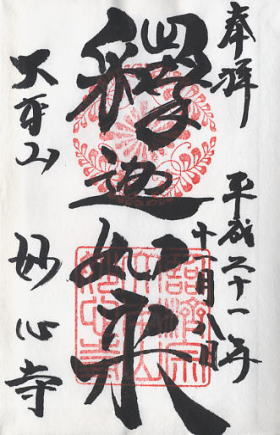 奉拝
平成二十一年
十一月八日
釋迦如来
大本山
妙心寺